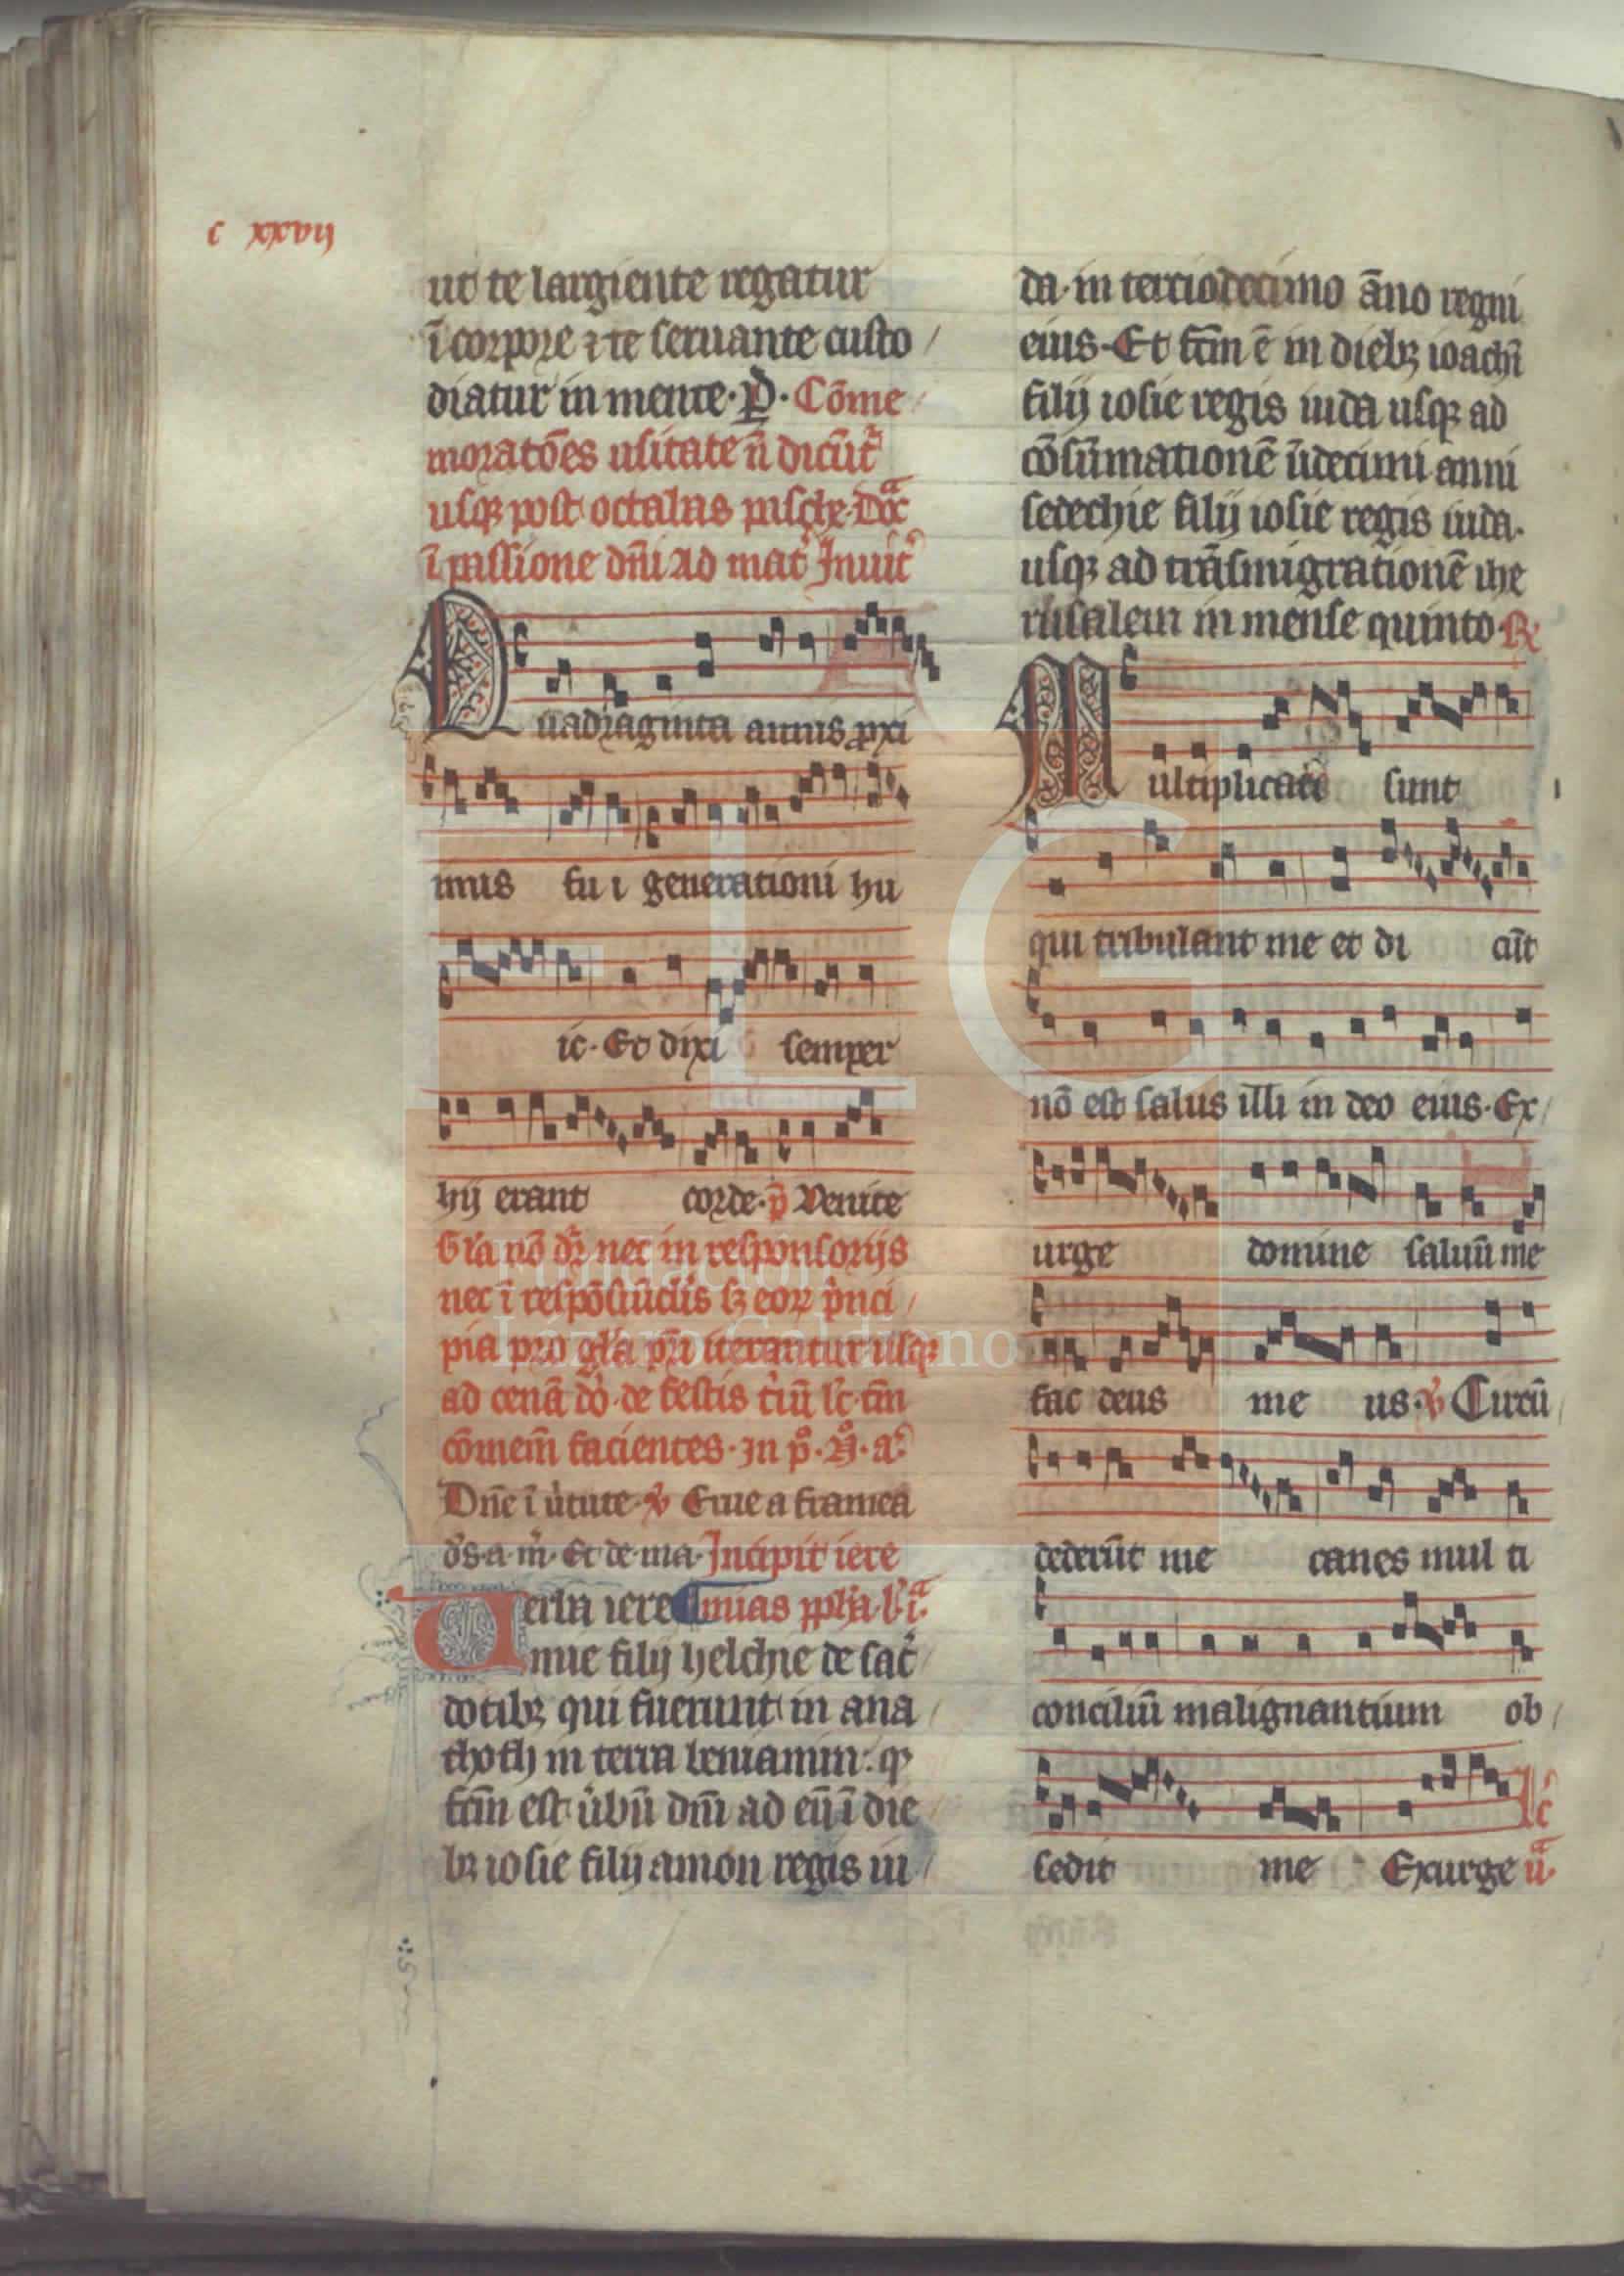 c xxvij
ut te largiente regatur
ī corpore ⁊ te seruante custo
diatur in mente. Cōme
moratōes usitate n̄ dicūt͛
usqꝫ post octabas pasche.
ī passione dn̄i ad mat͛ Inuit͛
Quadraginta annis ꝓxi
mus fu i generationi hu
ic. Et dixi semper
hij erant corde. p̄ Venite
Gl'a nō dr̄ nec in responsorijs
nec ī respōs sꝫ eoꝝ p̄nci
pia pro gl'a iterantur usqꝫ
ad cenā do. de festis t̄m
cōmem̄ facientes. In
Dn̄e ī u̓tute. ꝟ Erue a framea
d's. a. m̄. Et de ma. Incipit iere
Uerba iere mias ꝓph'a. l'. i.ᵃ
mie filij helchie de sac̓
dotibꝫ qui fuerunt in ana
thoth in terra beniamin: qꝫ
fcm̄ est u̓bū dn̄i ad eū ī die
bꝫ iosie filij amon regis iu
da. in terciodecimo āno regni
eius. Et fcm̄ ē in diebꝫ ioachī
filij iosie regis iuda usqꝫ ad
cōsūmationē ūdecimi anni
sedechie filij iosie regis iuda.
usqꝫ ad trāsmigrationē ihe
rusalem in mense quinto. ℟
Multiplicati sunt
qui tribulant me et di cūt
nō est salus illi in deo eius. Ex
urge domine saluū me
fac deus me us. ꝟ Circū
dederūt me canes mul ti
conciliū malignantium ob
sedit me Exurge
FLG
Fundación
Lázaro Galdiano